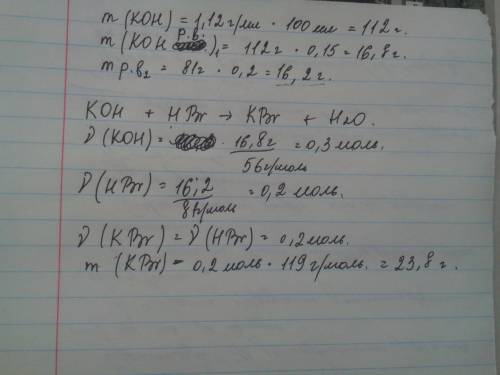 m (KOH) = 1,12 г/мл · 100 мл = 112 г.
m (KOH р.в.)₁ = 112 г · 0,15 = 16,8 г.
m р.в₂ = 81г · 0,2 = 16,2 г.
KOH + HBr → KBr + H₂O.
ν (KOH) = 16,8 г / 56 г/моль = 0,3 моль.
ν (HBr) = 16,2 / 81г/моль = 0,2 моль.
ν (KBr) = ν (HBr) = 0,2 моль.
m (KBr) = 0,2 моль · 119 г/моль. = 23,8 г.